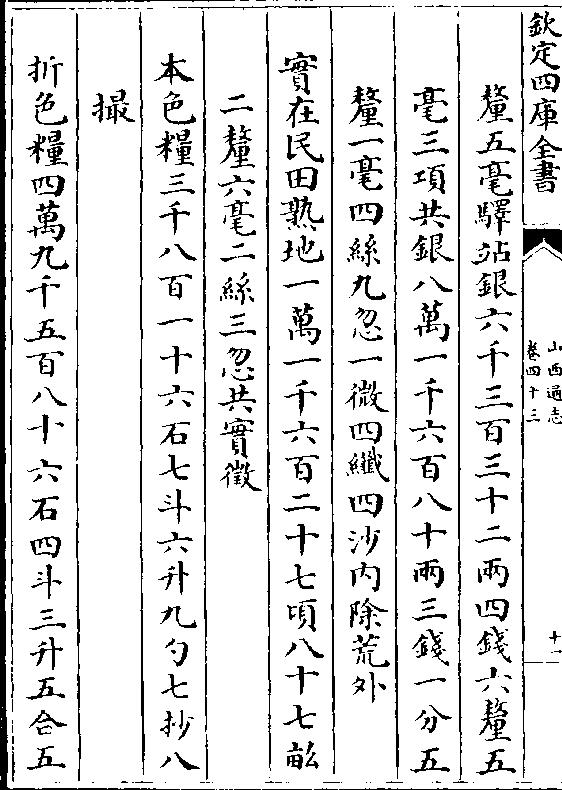 欽定四庫全書
山西通志
卷四十三
十一
釐五毫驛站銀六千三百三十二兩四錢六釐五
毫三項共銀八萬一千六百八十兩三錢一分五
釐一毫四絲九忽一微四纖四沙内除荒外
實在民田熟地一萬一千六百二十七頃八十七畝
二釐六毫二絲三忽共實徵
本色糧三千八百一十六石七斗六升九勺七抄八
撮
折色糧四萬九千五百八十六石四斗三升五合五